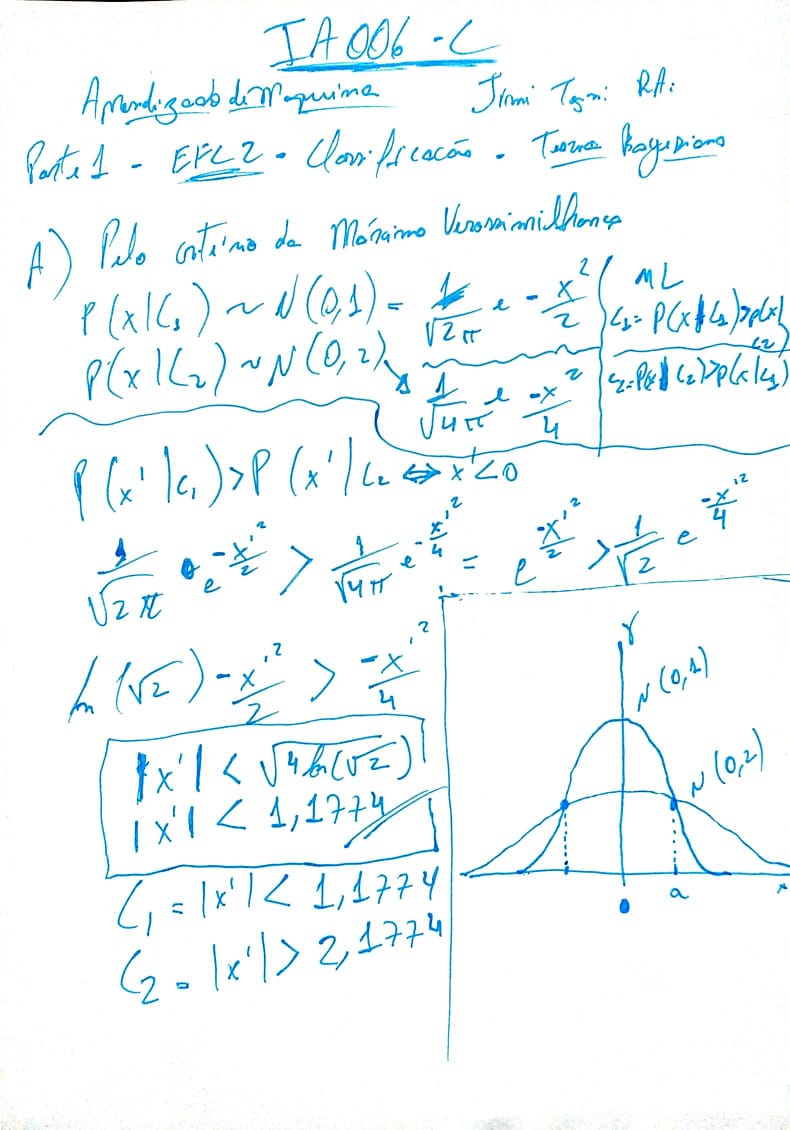 IA006 - C
Aprendizado de Maquina Jimi Togni RA:
Parte 1 - EFC2 - Classificação - Teoria Bayesiana
A) Pelo critério da Máxima Verossimilhança
P(x|C₁) ~ N(0,1) = 1/√2π e - x²/2
P(x|C₂) ~ N(0,2) → 1/√4π e -x²/4
ML
C₁ = P(x|C₁)>p(x|C₂)
C₂ = P(x|C₂)>p(x|C₁)
P(x'|C₁)>P(x'|C₂ ⇔ x'<0
1/√2π · e -x'²/2 > 1/√4π e -x'²/4 = e -x'²/2 > 1/√2 e -x'²/4
ln(√2) -x'²/2 > -x'²/4
|x'| < √4ln(√2)
|x'| < 1,1774
C₁ = |x'| < 1,1774
C₂ = |x'| > 2,1774
Y
N(0,1)
N(0,2)
0 a x